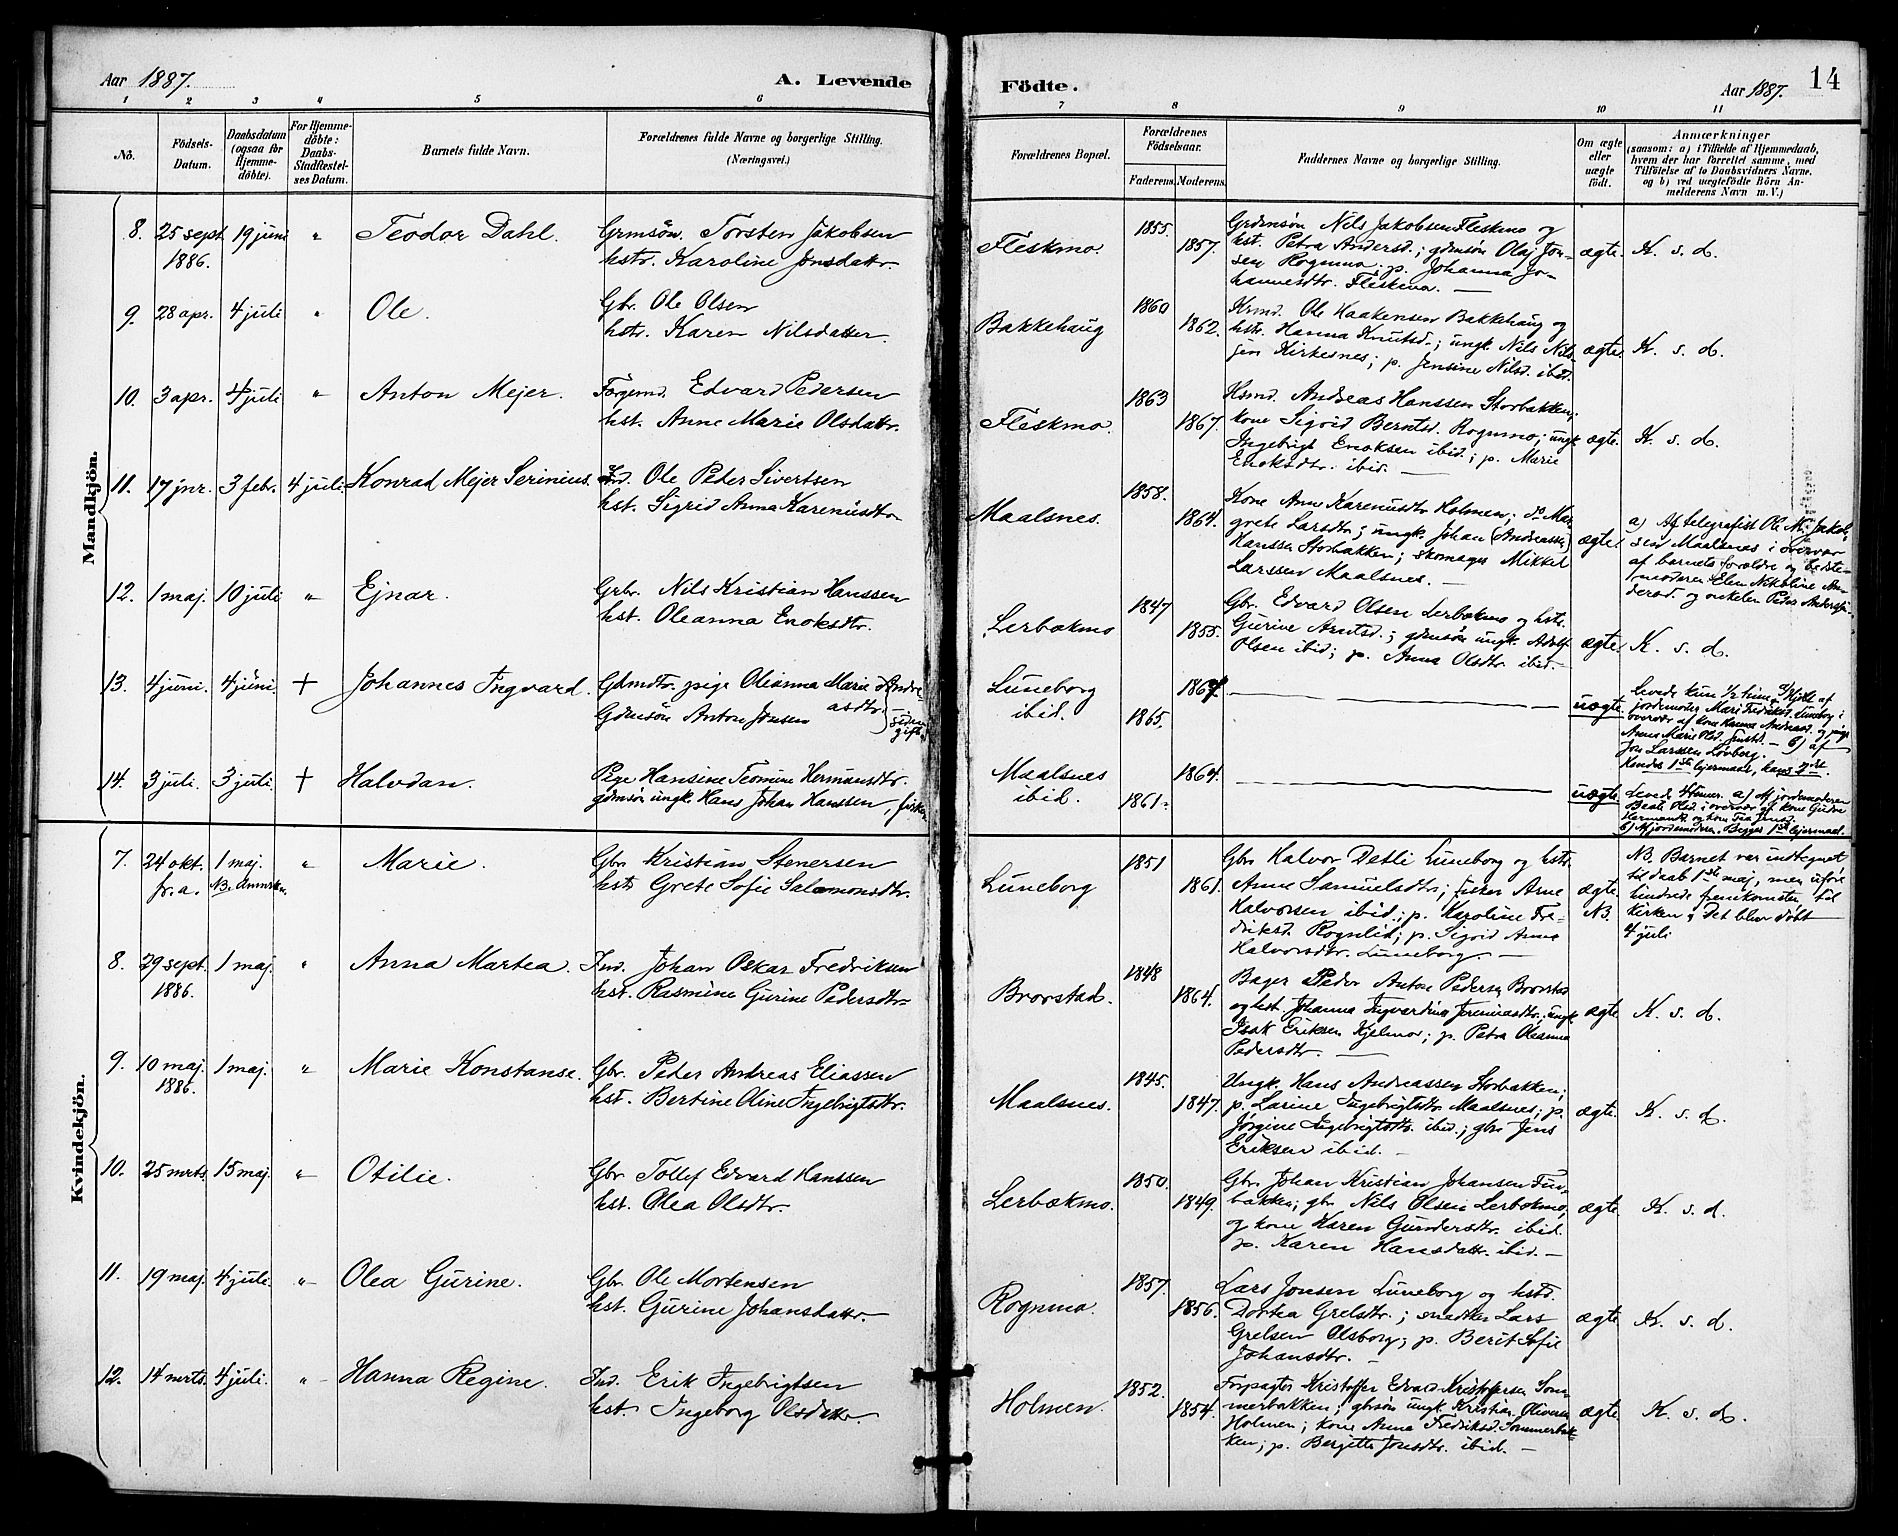 Aar 1887.
A. Levende
Födte.
Aar 1887.
14
1 2 3 4 5 6 7 8 9 10 11
No.
Födsels-
Datum.
Daabsdatum
(ogsaa for
Hjemme-
döbte).
For Hjemme-
döbte:
Daabs-
Stadfæstel-
ses Datum.
Barnets fulde Navn.
Forældrenes fulde Navne og borgerlige Stilling.
(Næringsvei.)
Forældrenes Bopæl.
Forældrenes
Födselsaar.
Faderens. Moderens.
Faddernes Navne og borgerlige Stilling.
Om ægte
eller
uægte
født.
Anmærkninger
(saasom: a) i Tilfælde af Hjemmedaab,
hvem der har forrettet samme, med
Tilföielse af to Daabsvidners Navne,
og b) ved uægtefödte Börn An-
melderens Navn m. V.)
Mandkjön.
8. 25 sept 1886. 19 juni " Teodor Dahl.
Grmsön. Torsten Jakobsen
hstr. Karoline Jonsdattr.
Fleskmo. 1855. 1857.
Grdmsøn Nils Jakobsen Fleskmo og
hst. Petra Andersd.; gdmsøn Olaj Jon-
sen Rognmo; p. Johanna Jo-
hannesdtr. Fleskmo. —
ægte. K. s. d.
9. 28 apr. 4 juli " Ole.
Gbr. Ole Olsen
hstr. Karen Nilsdatter
Bakkehaug 1860 1862.
Krmd. Ole Haakensen Bakkehaug og
hstr. Hanna Knutsd.; ungk. Nils Nils-
sen Kirkesnes; p. Jensine Nilsd. ibid.
ægte. K. s. d.
10. 3 apr. 4 juli " Anton Mejer.
Færgemd. Edvard Pedersen
hst. Anne Marie Olsdattr.
Fleskmo. 1863 1867.
Hsmd. Andreas Hanssen Storbakken;
kone Sigrid Berntsd. Rognmo; ungk
Ingebrigt Enoksen ibid.; p. Marie
Enoksdtr. ibid. —
ægte. K. s. d.
11. 17 jnr. 3 febr. 4 juli. Konrad Mejer Serinius.
Ind. Ole Peder Sivertsen
hst. Sigrid Anna Karenusdtr
Maalsnes. 1858. 1864.
Kone Ane Karenusdtr Holmen; do Mar-
grete Larsdtr; ungk. Johan (Andreassen)
Hanssen Storbakken; skomager Mikkel
Larssen Maalsnes. —
ægte.
a) Af telegrafist Ol. M. Jakob-
sen Maalsnes i overvær
af barnets forældre og bedste-
moderen Elen Nikoline An-
dersd. og onkelen Peder Andersen.
12. 1 maj. 10 juli " Ejnar.
Grbr. Nils Kristian Hanssen
hst. Oleanna Enoksdtr.
Lerbækmo 1847 1855.
Gbr. Edvard Olsen Lerbækmo og hstr.
Gurine Arntsd.; gdmsøn ungk. Adolf
Olsen ibid; p. Anna Olsdtr. ibid.
ægte. K. s. d.
13. 4 juni. 4 juni. + Johannes Ingvard.
Gdmdtr. pige Oleanna Marie Andre
asdtr.
Gdmsön Anton Jonsen
siden gift.
Luneborg
ibid. 1865. 1867.
uægte.
levede kun 1/2 time. a) Hjdt. af
jordemoder Mari Fredriksd. Luneborg i
overvær af kone Hanna Andreasd. og pige
Anne Marie — b) af
Jon Larssen Løvberg.
Hendes 1ste lejermaal, hans 2det.
14. 3 juli. 3 juli. + Halvdan.
Pige Hansine Teomine Hermansdtr.
gdmsøn ungk. Hans Johan Hanssen, fisker
Maalsnes
ibid. 1861. 1864.
uægte.
Levede 4 timer. a) Af jordemoderen
Beate Olsd. i overvær af kone Gudve
Hermansd. og
b) Af jordemoderen. Begges 1ste lejermaal.
Kvindekjön.
7. 24 okt. fr. a. 1 maj. NB. Anmrkn. " Marie.
Gbr. Kristian Stenersen
hst. Grete Sofie Salamonsdtr.
Luneborg 1851 1861.
Gbr. Halvor Detli Luneborg og hstr.
Anne Samuelsdtr; fisker Arne
Halvorsen ibid.; p. Karoline Fre-
driksd. Rognlid; p. Sigrid Anna
Halvorsdtr. Luneborg. —
ægte. NB.
NB. Barnet var indtegnet
til daab 1ste maj, men uføre
hindrede fremkomsten til
kirken; Det blev døbt
4 juli
8. 29 sept. 1886. 1 maj. " Anna Martea.
Ind. Johan Oskar Fredriksen
hst. Rasmine Gurine Pedersdtr.
Brovstad. 1848 1864.
Bager Peder Anton Pedersen Brovstad
og hst. Johanna Ingvardine Jeremiasdtr; ungk.
Isak Eriksen Kjelmo; p. Petra Oleanna
Pedersdtr. —
ægte. K. s. d.
9. 10 maj 1886. 1 maj. " Marie Konstanse.
Gbr. Peder Andreas Eliassen
hst. Bertine Oline Ingebrigtsdtr.
Maalsnes. 1845. 1847.
Ungk. Hans Andreassen Storbakken;
p. Larine Ingebrigtsdtr. Maalsnes; p.
Jørgine Ingebrigtsdtr. ibid.; gbr Jens
Eriksen ibid. —
ægte. K. s. d.
10. 25 mrts. 15 maj. " Otilie.
Gbr Tollef Edvard Hanssen
hst. Olea Olsdtr.
Lerbækmo. 1850. 1849.
Gbr. Johan Kristian Johansen Fur-
bakken; gbr. Nils Olsen Lerbækmo,
og kone Karen Gundersdtr. ibid.
p. Karen Hansdattr. ibid. —
ægte. K. s. d.
11. 19 maj. 4 juli. " Olea Gurine.
Gbr. Ole Mortensen
hst. Gurine Johansdattr.
Rognmo. 1857. 1856.
Lars Jonsen Luneborg og hstd.
Dortea Grelsdtr.; snedker Lars
Grelsen Olsborg; p. Berit Sofie
Johansdtr. —
ægte. K. s. d.
12. 14 mrts. 4 juli. " Hanna Regine.
Ind. Erik Ingebrigtsen
hst. Ingeborg Olsdattr.
Holmen. 1852. 1854.
Forpagter Kristoffer Edvard Kristoffersen Som-
merbakken; gbrsøn ungk. Kristian Oliversen
Holmen; kone Anna Fredriksd. Sommerbak-
ken; p. Bergitte Jonsdtr. ibid. —
ægte. K. s. d.